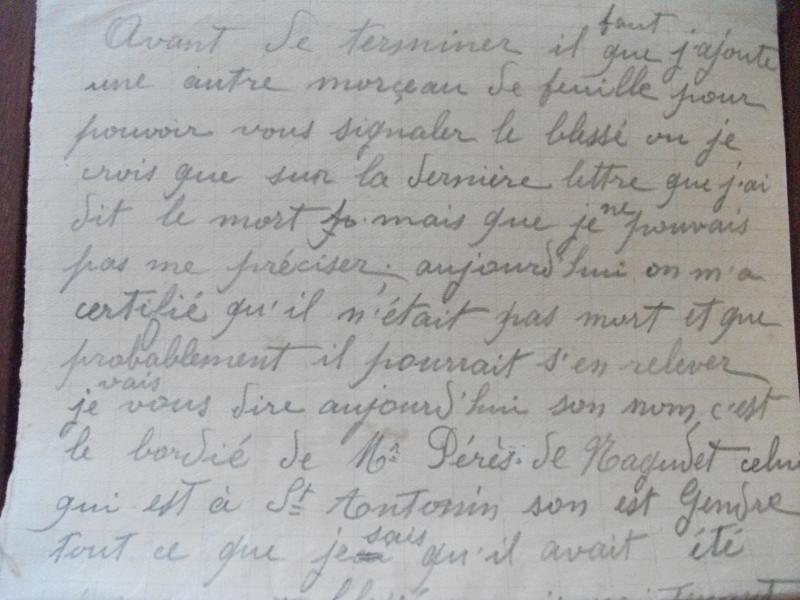 Avant de terminer il faut que j'ajoute
une autre morçeau de feuille pour
pouvoir vous signaler le blessé ou je
crois que sur la dernière lettre que j'ai
dit le mort mais que je ne pouvais
pas me préciser; aujourd'hui on m'a
certifié qu'il n'était pas mort et que
probablement il pourrait s'en relever
je vais vous dire aujourd'hui son nom, c'est
le bordié de Mr Pérès de Nagudet celui
qui est à St Antonin son est Gendre
tout ce que je sais qu'il avait été